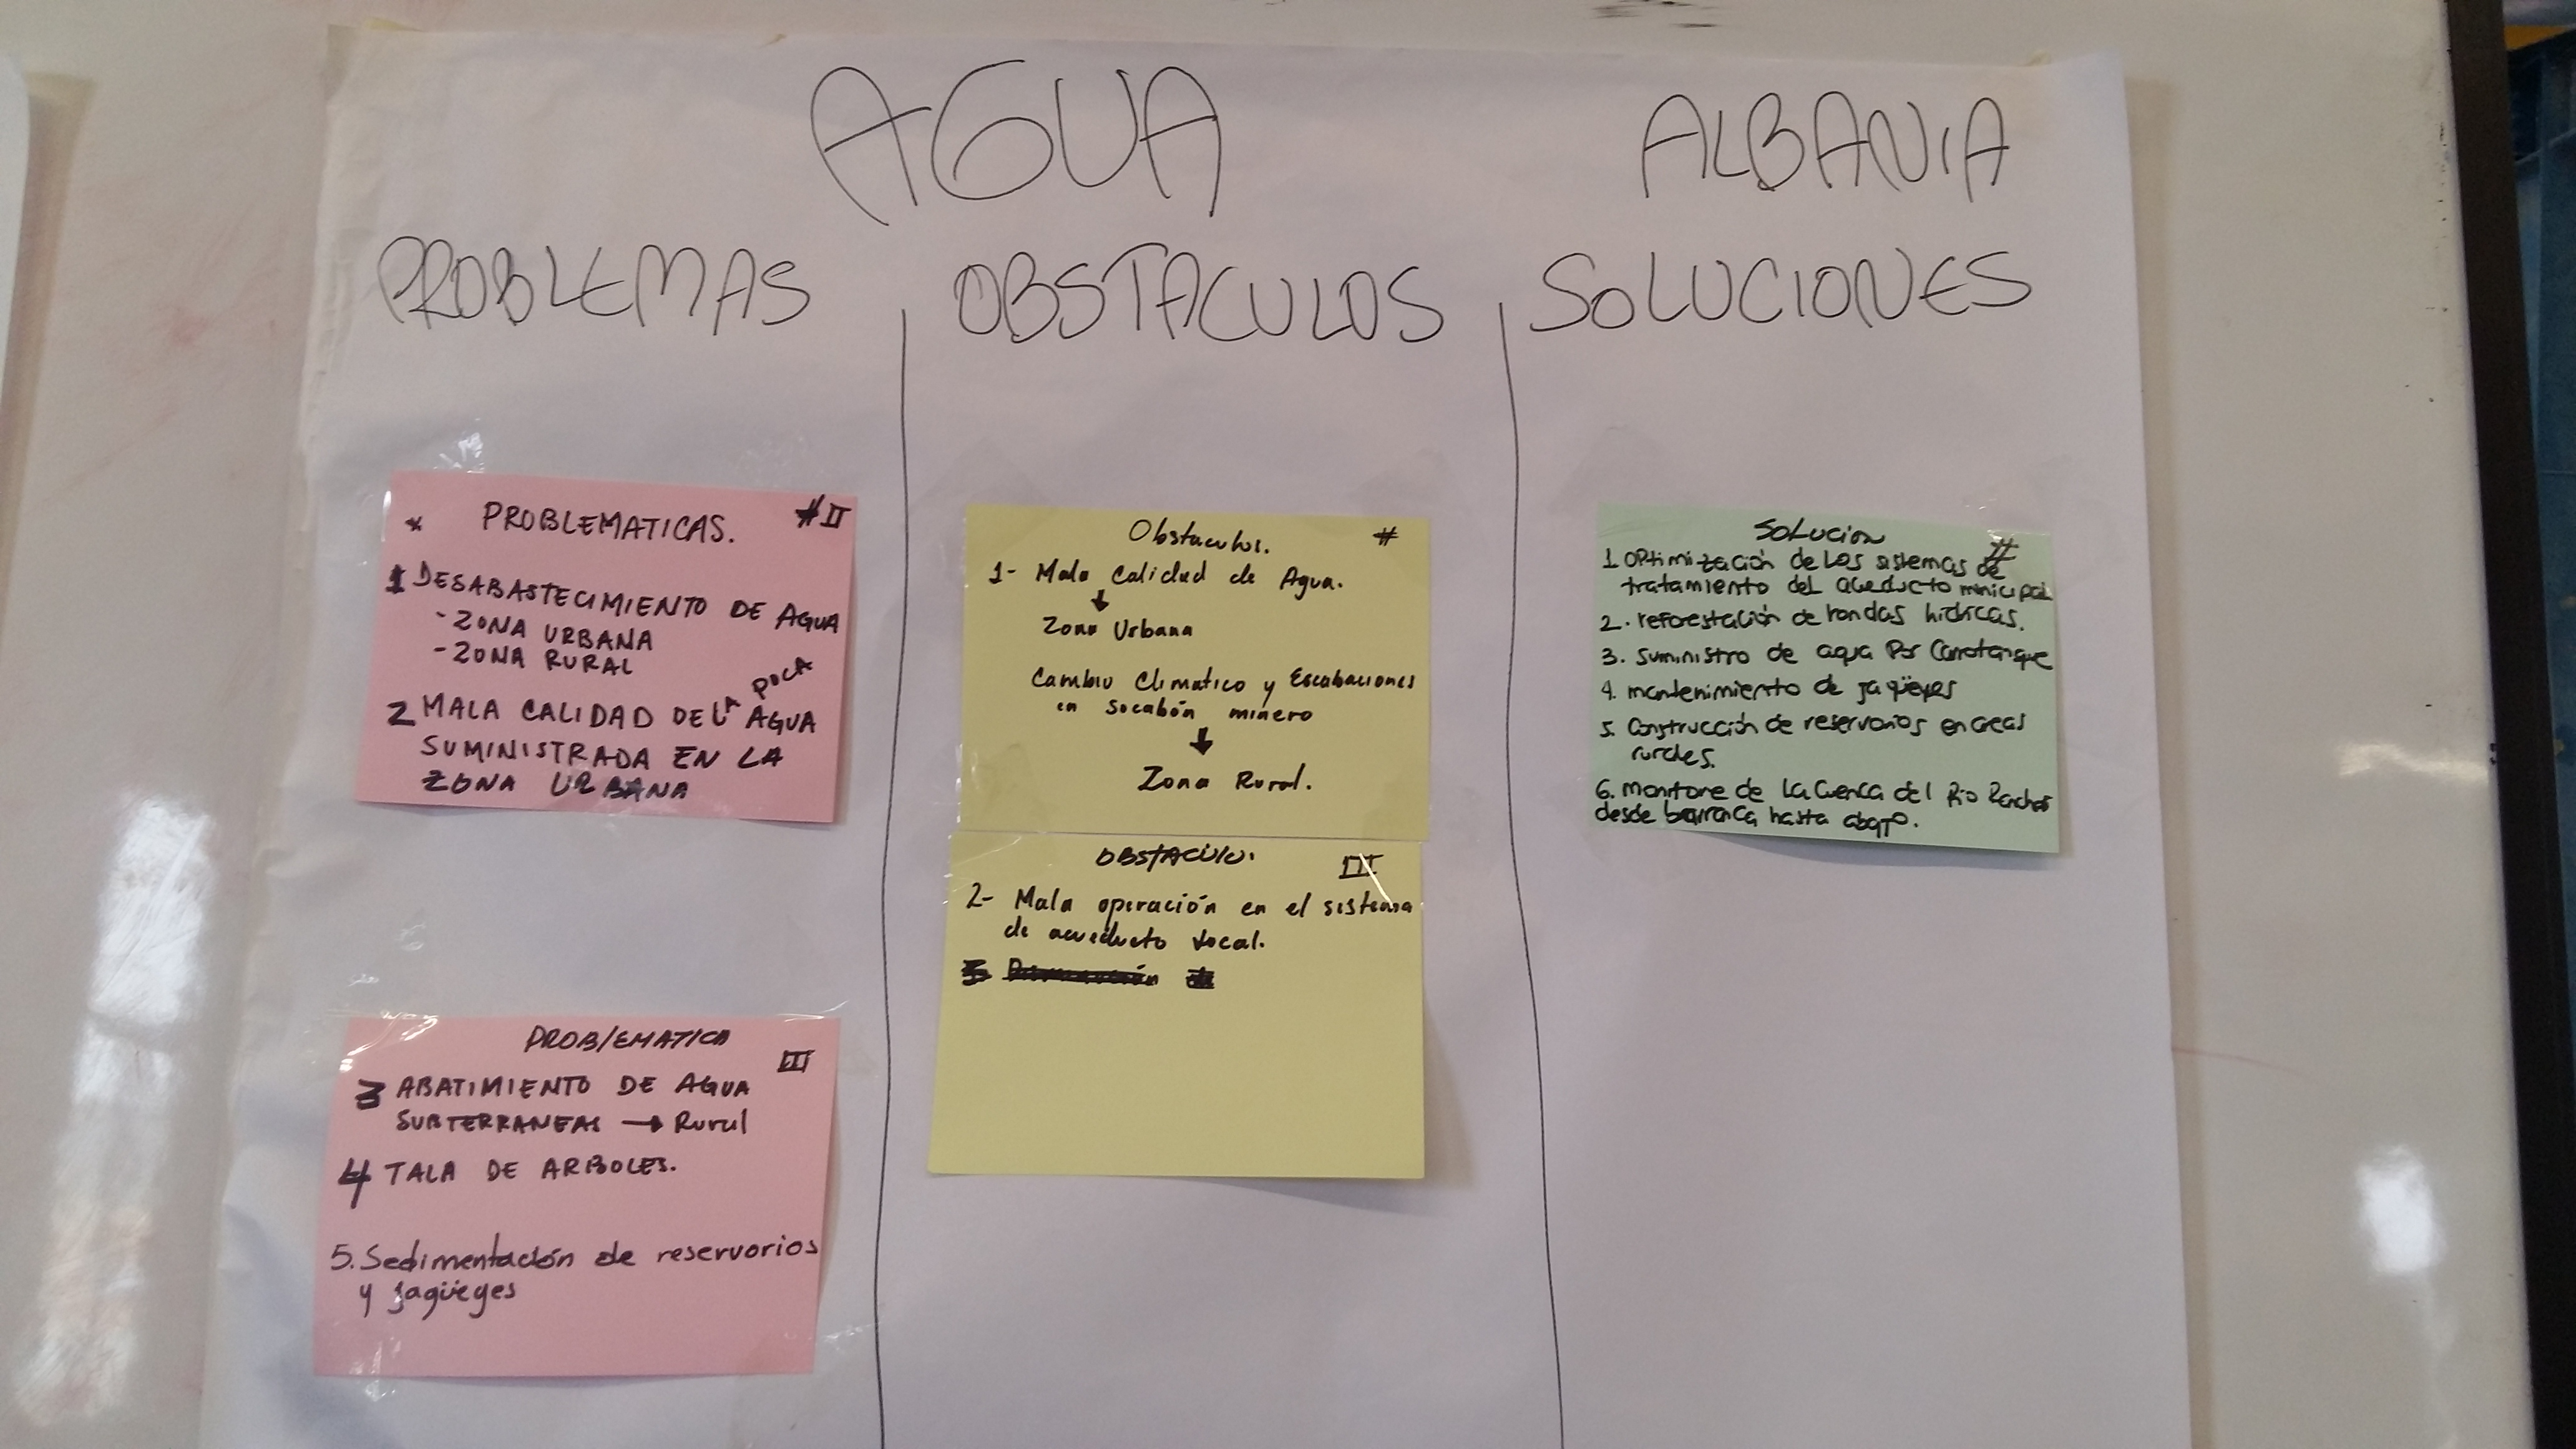 AGUA
ALBANIA
PROBLEMAS
OBSTACULOS
SOLUCIONES
* PROBLEMATICAS. # II
1 DESABASTECIMIENTO DE AGUA
- ZONA URBANA
- ZONA RURAL
2 MALA CALIDAD DE LA POCA AGUA
SUMINISTRADA EN LA
ZONA URBANA
PROBLEMATICA
III
3 ABATIMIENTO DE AGUA
SUBTERRANEAS → Rural
4 TALA DE ARBOLES.
5. Sedimentación de reservorios
y jagüeyes
Obstaculos. #
1- Mala Calidad de Agua.
↓
Zona Urbana
Cambio Climatico y Escabaciones
en Socabón minero
↓
Zona Rural.
OBSTACULO. II
2- Mala operación en el sistema
de acueducto local.
Solucion
#
1. Optimización de los sistemas de
tratamiento del acueducto minicipal
2. reforestación de rondas hidricas.
3. Suministro de agua Por Carrotanque
4. mantenimiento de jagüeyes
5. Construcción de reservorios en areas
rurales.
6. monitore de La Cuenca del Rio
desde barranca hasta abajo.